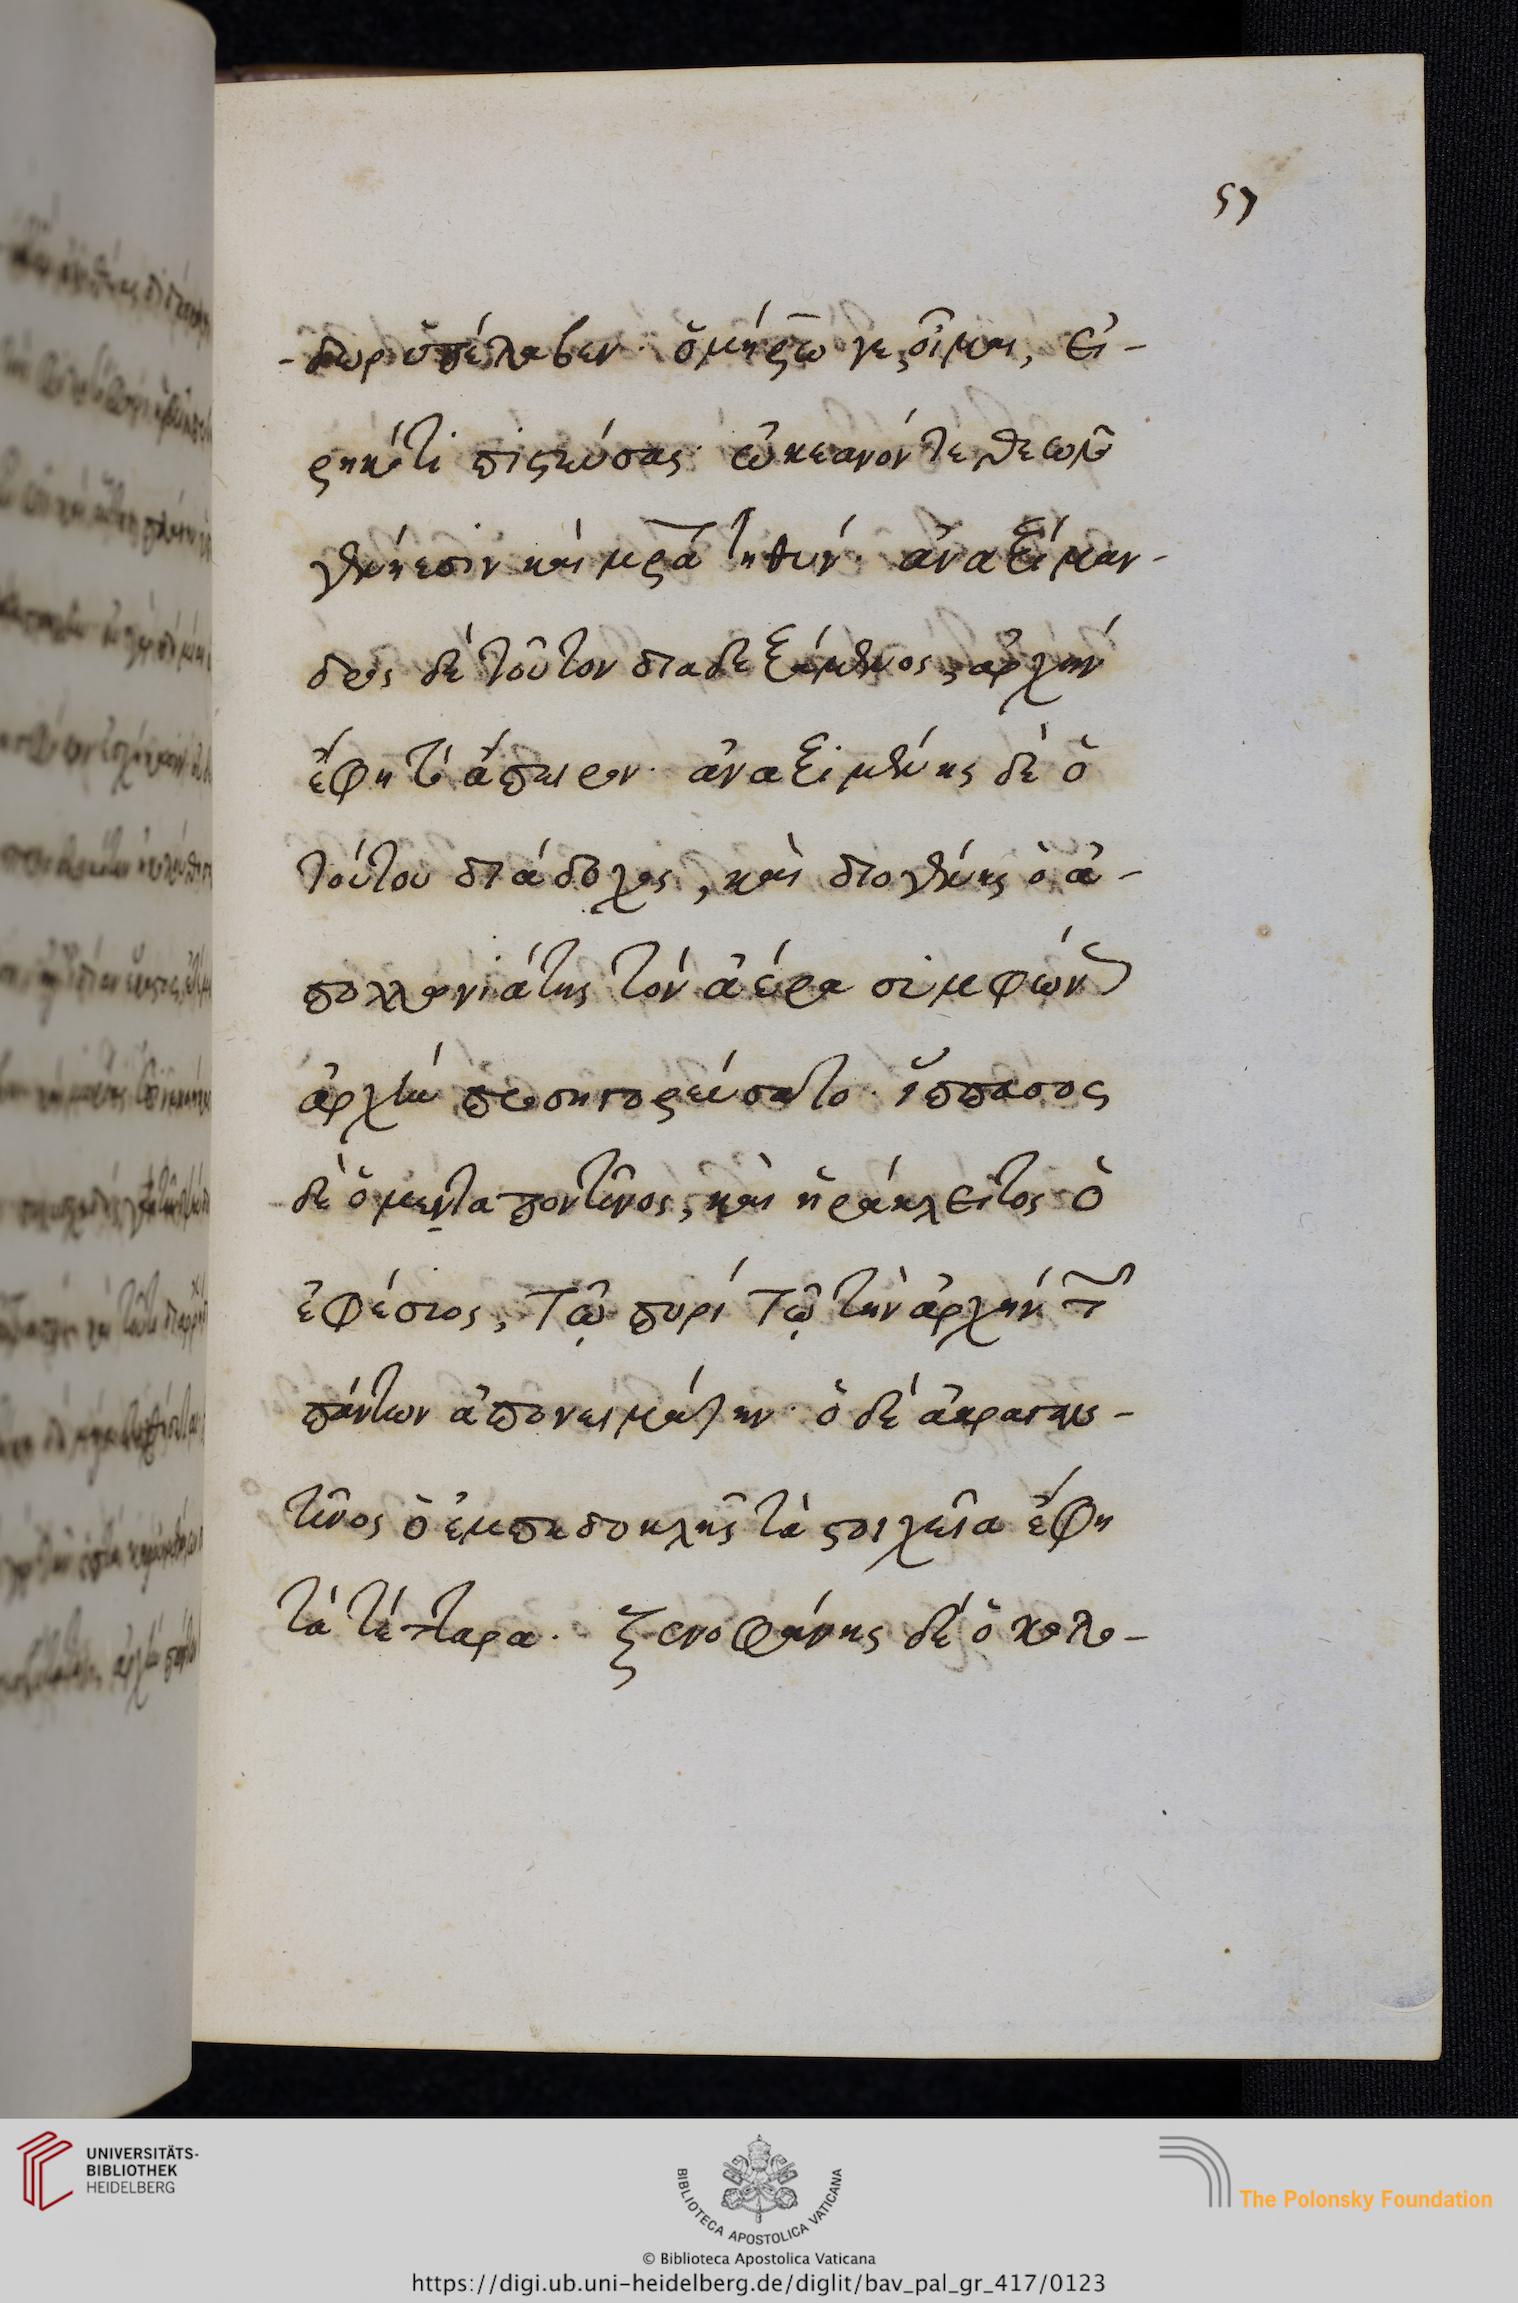 57
-δωρ ὑπέλαβεν· ὁμήρω γε, οἶμαι, εἰ-
ρηκότι πιστεύσας· ὠκεανόν τε θεῶν
γένεσιν καὶ μρα τηθύν· ἀναξίμαν-
δρος δὲ τοῦτον διαδεξάμενος, ἀρχὴν
ἔφη τὸ ἄπειρον· ἀναξιμένης δὲ ὁ
τούτου διάδοχος, καὶ διογένης ὁ ἀ-
πολλωνιάτης τὸν ἀέρα
ἀρχὴν προσηγορεύσατο· ἵππασος
δὲ ὁ μεταποντῖνος, καὶ ἡράκλειτος ὁ
ἐφέσιος, τῷ πυρὶ τῷ τὴν ἀρχὴν τῶν
πάντων ἀπονειμάτην· ὁ δὲ ἀκραγαν-
τῖνος ὁ ἐμπεδοκλῆς τὰ στοιχεῖα ἔφη
τὰ τέτταρα· ξενοφάνης δὲ ὁ κολο-
UNIVERSITÄTS-
BIBLIOTHEK
HEIDELBERG
BIBLIOTECA APOSTOLICA VATICANA
The Polonsky Foundation
© Biblioteca Apostolica Vaticana
https://digi.ub.uni-heidelberg.de/diglit/bav_pal_gr_417/0123